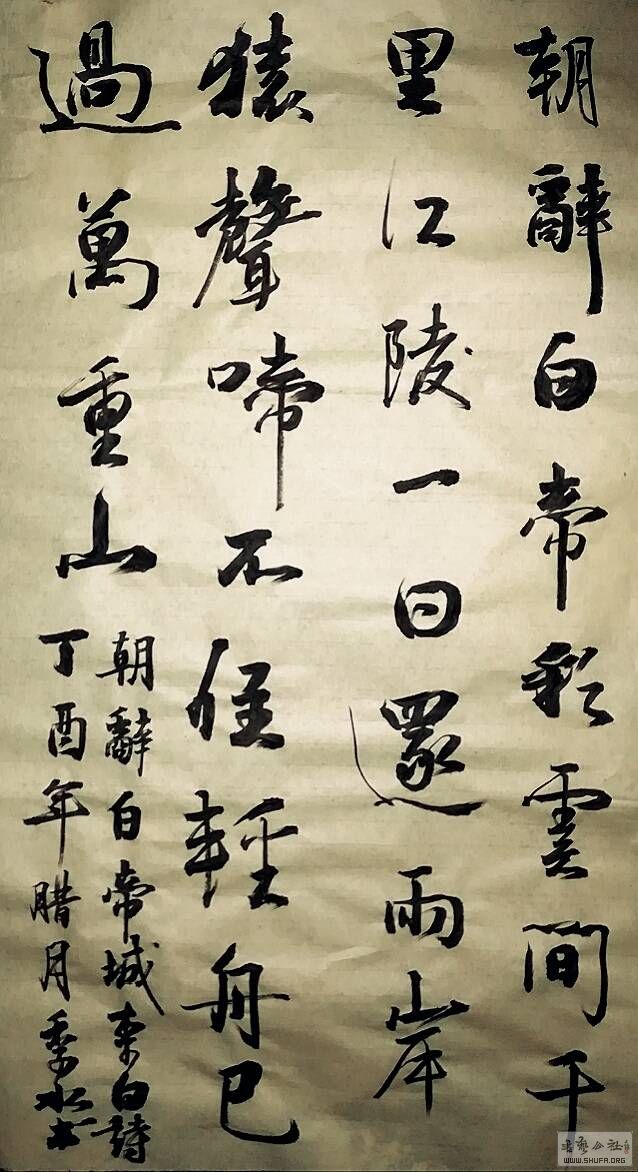 朝辭白帝彩雲間千
里江陵一日還兩岸
猿聲啼不住輕舟已
過萬重山
朝辭白帝城李白詩
丁酉年腊月季水书
书艺公社
WWW.SHUFA.ORG